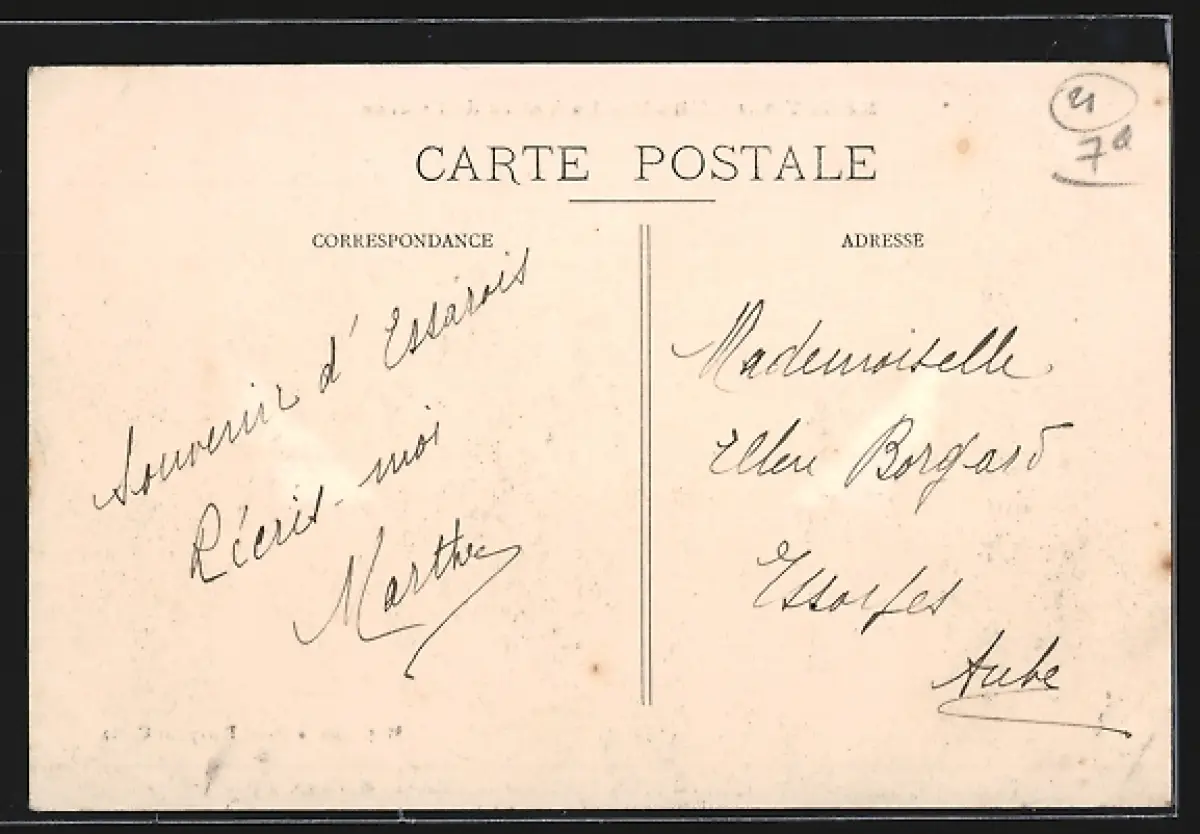 CARTE POSTALE
CORRESPONDANCE
ADRESSE
Souvenir d'Essarois
Récris-moi
Marthe
Mademoiselle
Ellen Borgard
Essoyes
Aube
21
7